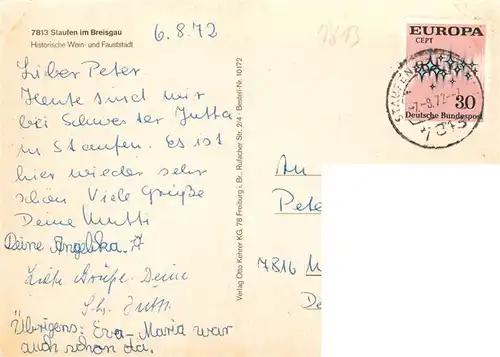 7813 Staufen im Breisgau
Historische Wein- und Fauststadt
6.8.72
7813
Lieber Peter
Heute sind wir
bei Schwester Jutta
in Staufen. Es ist
hier wieder sehr
schön Viele Grüße
Deine Mutti
Deine Angelika
Liebe Grüße. Deine
Übrigens: Eva-Maria war
auch schon da.
Verlag Otto Kehrer KG, 78 Freiburg i. Br., Rufacher Str. 2/4 · Bestell-Nr. 10172
EUROPA
CEPT
30
Deutsche Bundespost
STAUFEN
7813
An
Pete
7816